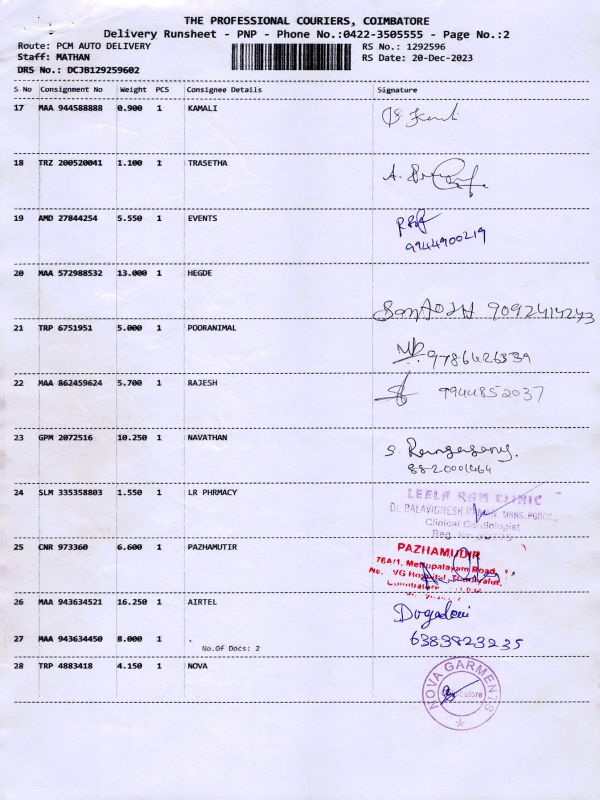 THE PROFESSIONAL COURIERS, COIMBATORE
Delivery Runsheet - PNP - Phone No.:0422-3505555 - Page No.:2
Route: PCM AUTO DELIVERY RS No.: 1292596
Staff: MATHAN RS Date: 20-Dec-2023
DRS No.: DCJB129259602
S No Consignment No Weight PCS Consignee Details Signature
17 MAA 944588888 0.900 1 KAMALI
18 TRZ 200520041 1.100 1 TRASETHA
A.
19 AMD 27844254 5.550 1 EVENTS
9944900219
20 MAA 572988532 13.000 1 HEGDE
SANTOSH 9092414243
21 TRP 6751951 5.000 1 POORANIMAL
9786426339
22 MAA 862459624 5.700 1 RAJESH 9944852037
23 GPM 2072516 10.250 1 NAVATHAN
S.
8820001464
24 SLM 335358803 1.550 1 LR PHRMACY LEELA RAM CLINIC
Dr. BALAVIGNESH MBBS., PGDCC.,
Clinical Cardiologist
Reg. No:
25 CNR 973360 6.600 1 PAZHAMUTIR PAZHAMUDIR
76A/1, Mettupalayam Road,
VG Hospital,
Coimbatore
26 MAA 943634521 16.250 1 AIRTEL
27 MAA 943634450 8.000 1 . 6383923235
No.Of Docs: 2
28 TRP 4883418 4.150 1 NOVA NOVA GARMENTS